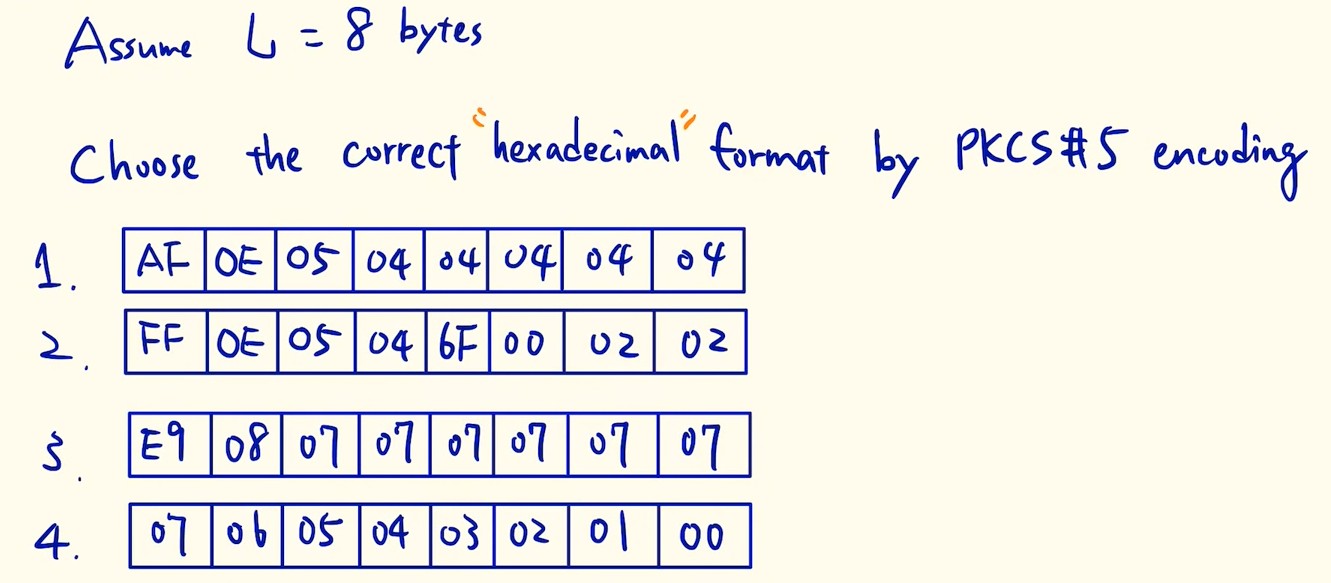 Assume L = 8 bytes
Choose the correct "hexadecimal" format by PKCS#5 encoding
1. AF 0E 05 04 04 04 04 04
2. FF 0E 05 04 6F 00 02 02
3. E9 08 07 07 07 07 07 07
4. 07 06 05 04 03 02 01 00